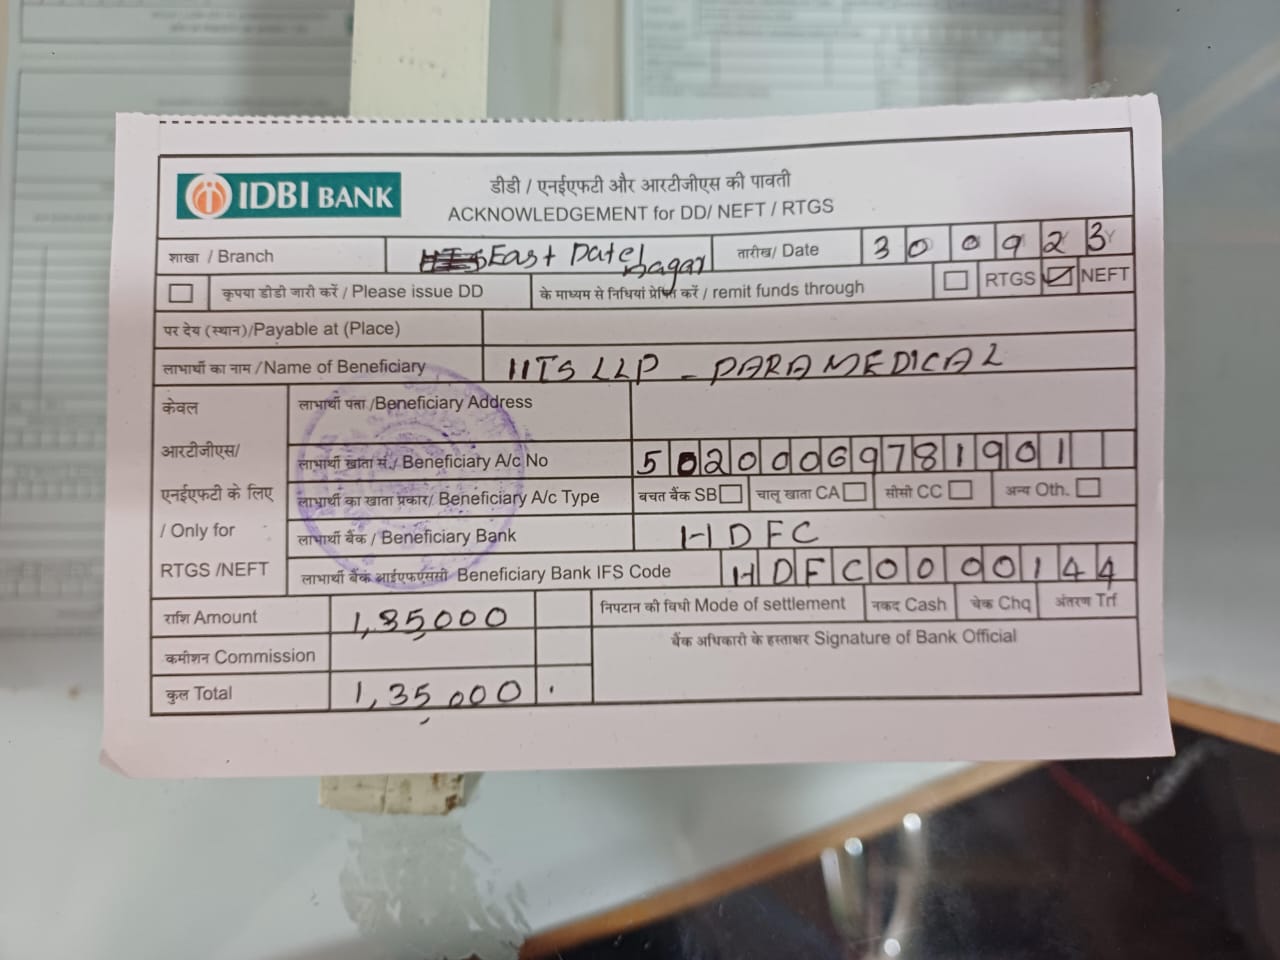 IDBI BANK
डीडी / एनईएफटी और आरटीजीएस की पावती
ACKNOWLEDGEMENT for DD/ NEFT / RTGS
शाखा / Branch East Patel Nagar तारीख/ Date 300923
कृपया डीडी जारी करें / Please issue DD के माध्यम से निधियां प्रेषित करें / remit funds through RTGS NEFT
पर देय (स्थान)/Payable at (Place)
लाभार्थी का नाम /Name of Beneficiary IITS LLP - PARAMEDICAL
केवल
लाभार्थी पता /Beneficiary Address
आरटीजीएस/
लाभार्थी खाता सं./ Beneficiary A/c No 50200069781901
एनईएफटी के लिए
लाभार्थी का खाता प्रकार/ Beneficiary A/c Type बचत बैंक SB चालू खाता CA सीसी CC अन्य Oth.
/ Only for
लाभार्थी बैंक / Beneficiary Bank HDFC
RTGS /NEFT
लाभार्थी बैंक आईएफएससी Beneficiary Bank IFS Code HDFC0000144
राशि Amount 1,35,000 निपटान की विधी Mode of settlement नकद Cash चेक Chq अंतरण Trf
कमीशन Commission बैंक अधिकारी के हस्ताक्षर Signature of Bank Official
कुल Total 1,35,000